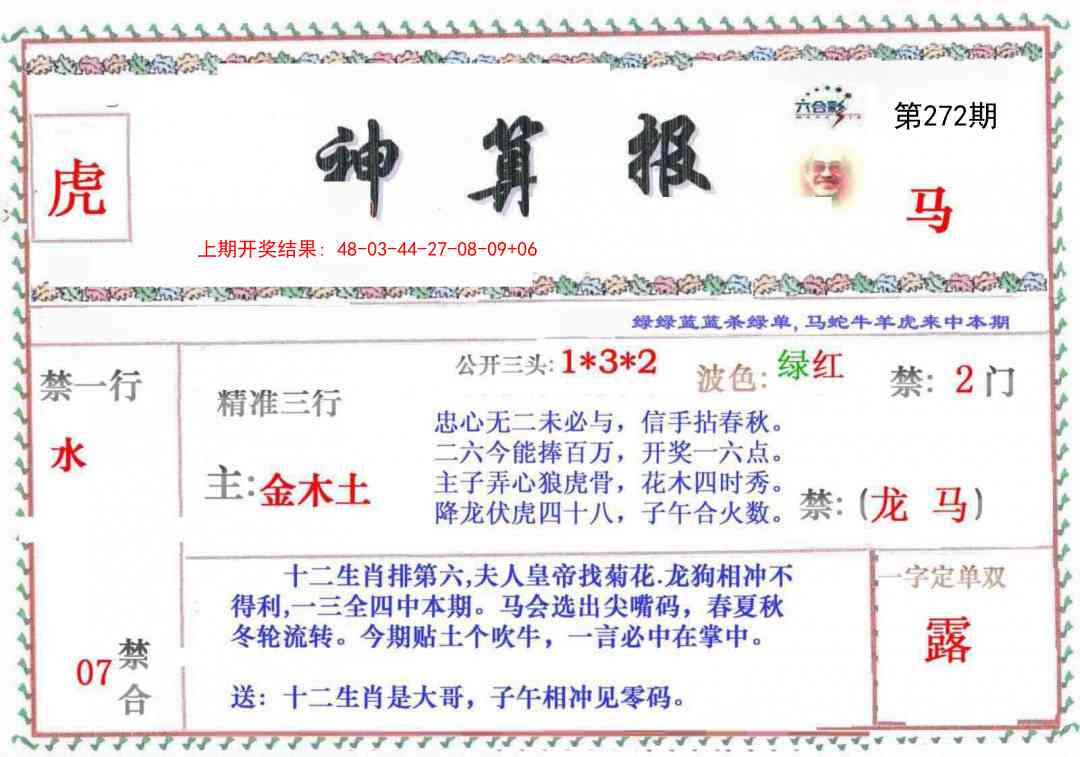 六合彩
第272期
虎
神算报
马
上期开奖结果：48-03-44-27-08-09+06
绿绿蓝蓝杀绿单,马蛇牛羊虎来中本期
禁一行
水
精准三行
主:金木土
公开三头:1*3*2
波色:绿红
禁:2门
忠心无二未必与，信手拈春秋。
二六今能捧百万，开奖一六点。
主子弄心狼虎骨，花木四时秀。
降龙伏虎四十八，子午合火数。
禁:(龙 马)
十二生肖排第六,夫人皇帝找菊花.龙狗相冲不
得利,一三全四中本期。马会选出尖嘴码，春夏秋
冬轮流转。今期贴土个吹牛，一言必中在掌中。
送：十二生肖是大哥，子午相冲见零码。
07
禁合
一字定单双
露